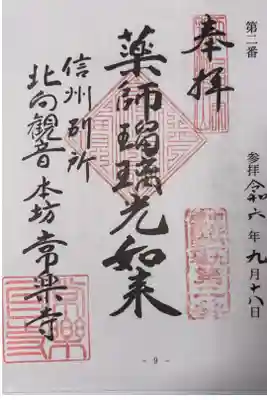 第二番
参拝 令和六年九月十八日
奉拝
薬師瑠璃光如来
信州別所
北向観音 本坊 常楽寺
- 9 -